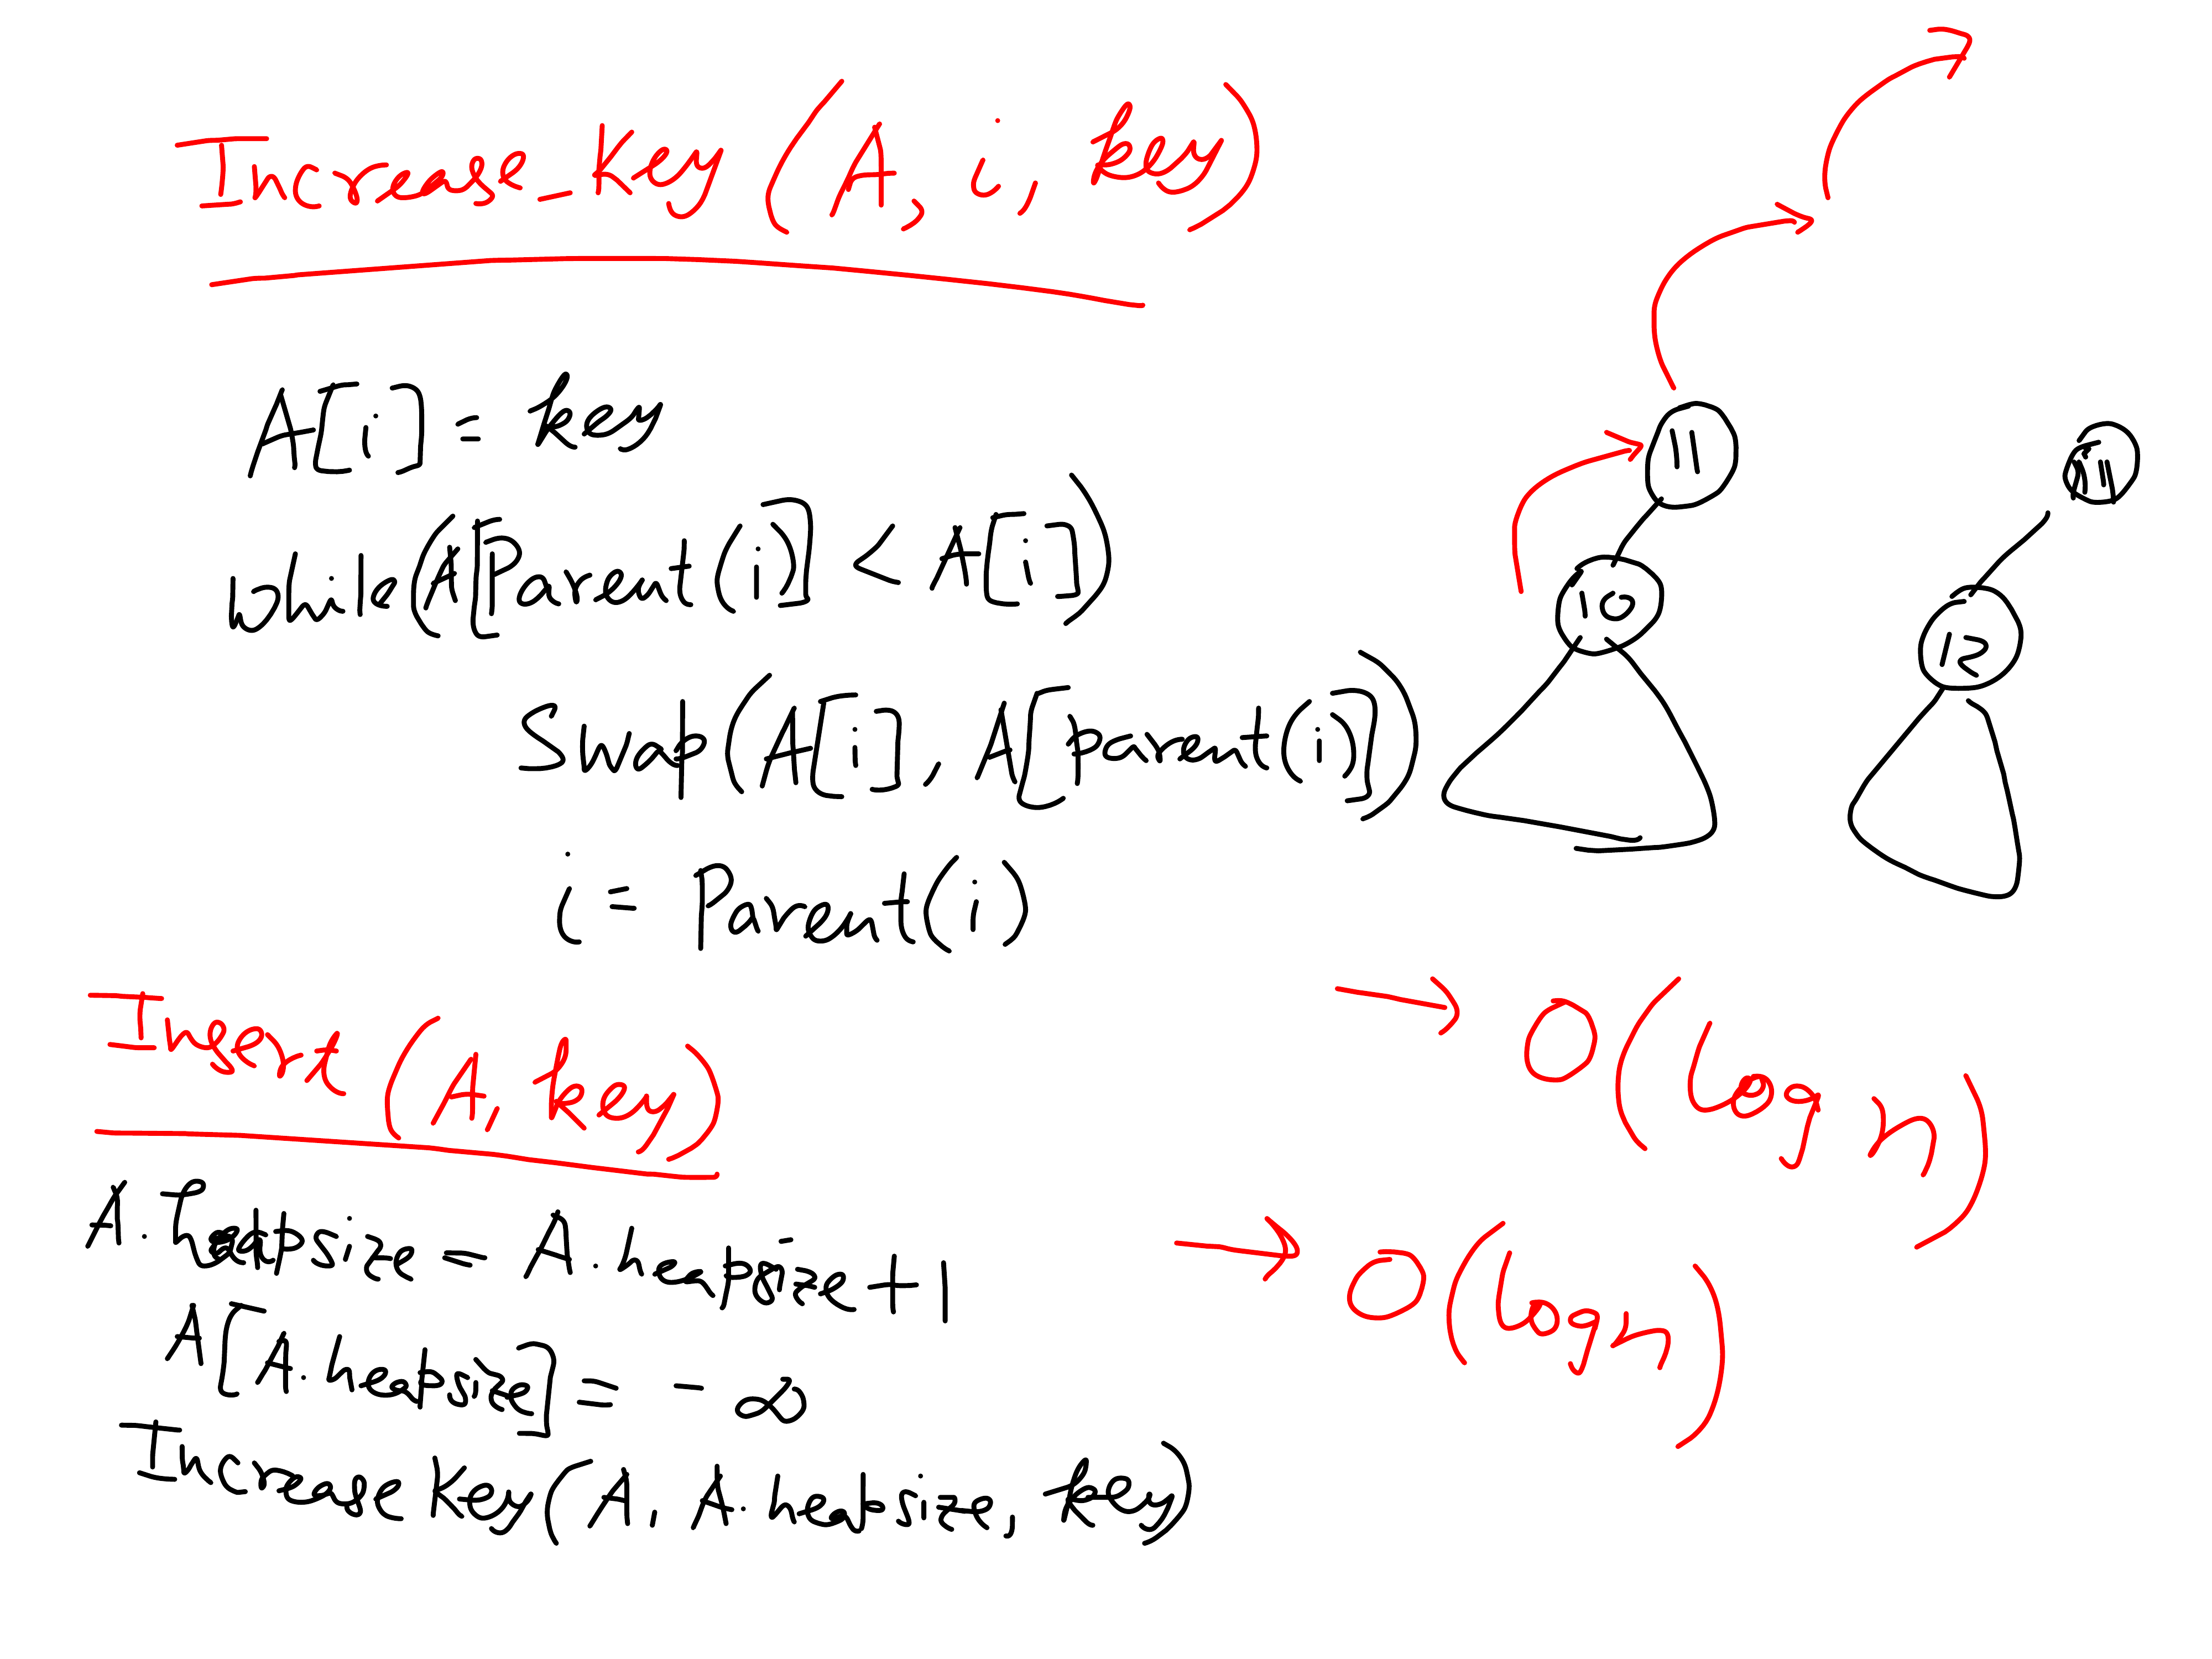 Increase_Key(A, i, key)
A[i] = key
While(A[Parent(i)] < A[i])
Swap(A[i], A[parent(i)])
i = Parent(i)
11
10
11
12
→ O(log n)
Insert(A, key)
A.heapsize = A.heapsize+1
→ O(log n)
A[A.heapsize] = -∞
Increase Key(A, A.heapsize, key)